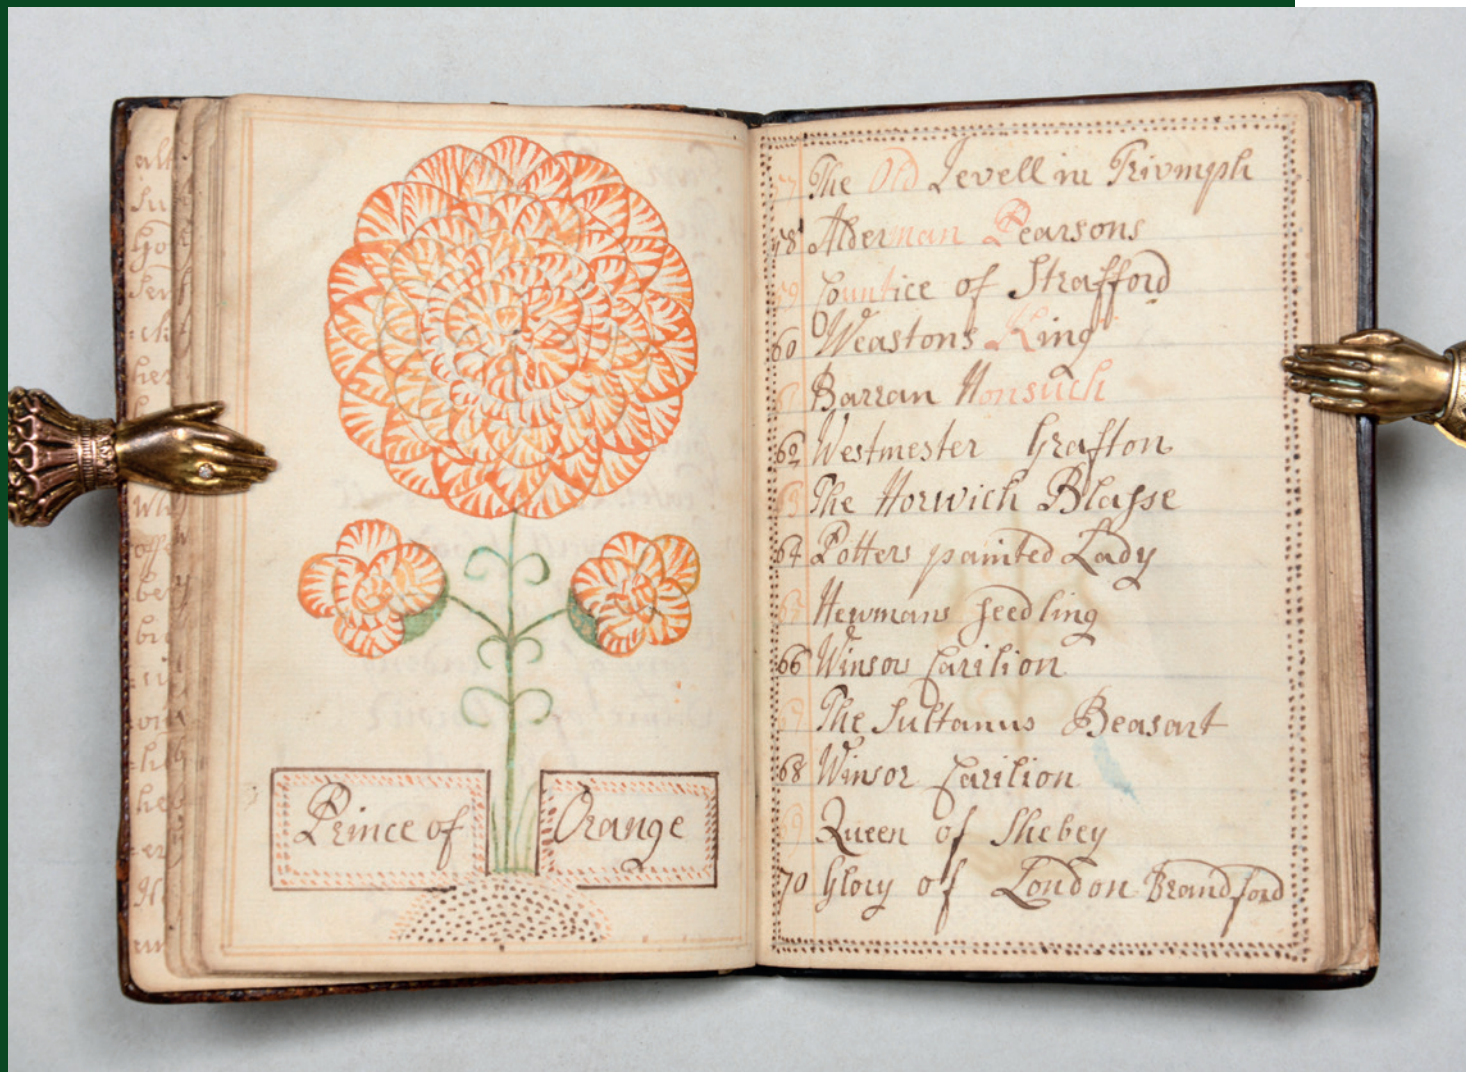 Prince of Orange
57 The Old Jevell in Trivmph
58 Alderman Pearsons
59 Countice of Strafford
60 Weastons King
61 Barran Nonsuch
62 Westmester Grafton
63 The Norwich Blasse
64 Potters painted Lady
65 Newmans seedling
66 Winsor Carilion
67 The Sultanus Beasart
68 Winsor Carilion
69 Queen of Shebey
70 Glory of London Brandford